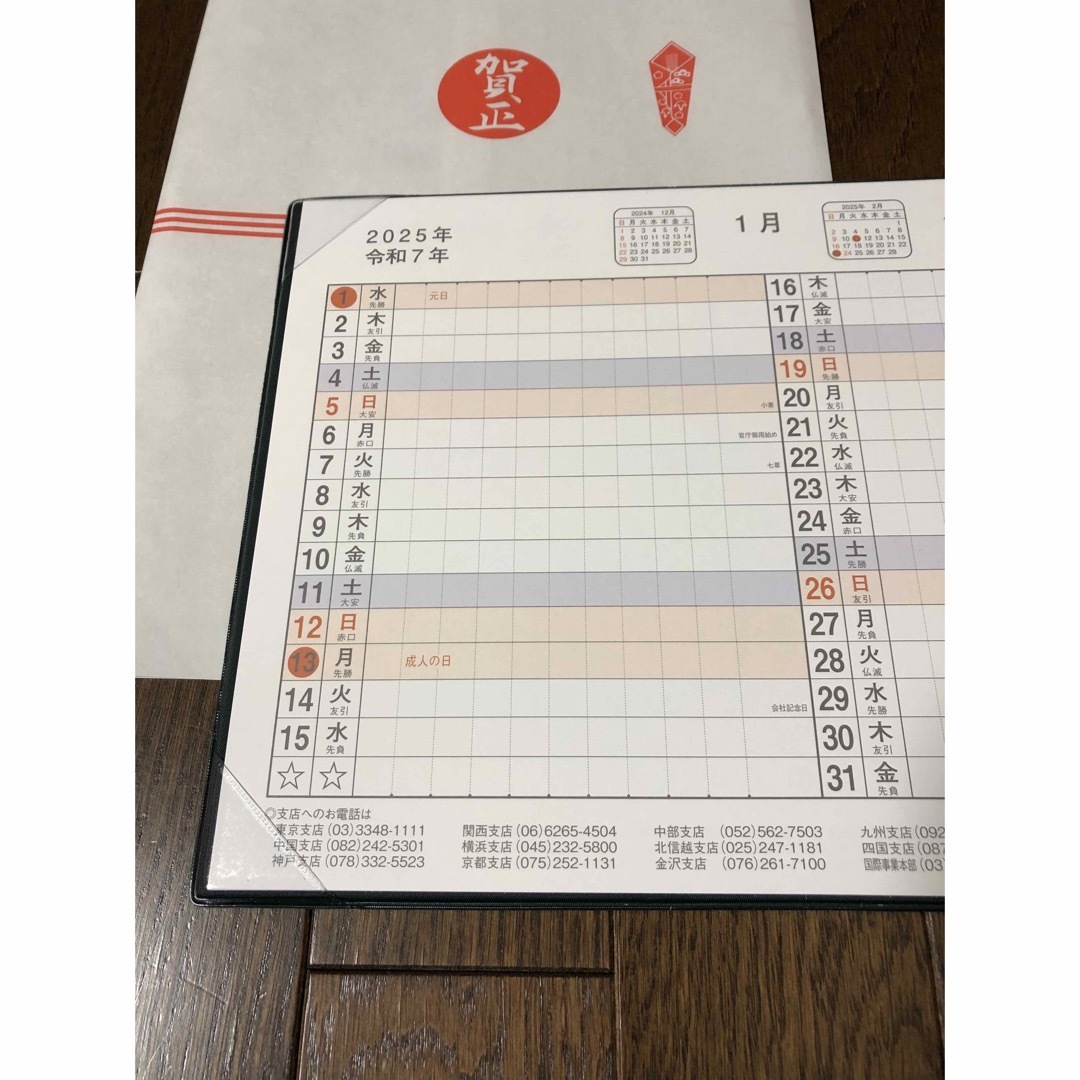 賀正
2025年
令和7年
2024年 12月
日 月 火 水 木 金 土
1 2 3 4 5 6 7
8 9 10 11 12 13 14
15 16 17 18 19 20 21
22 23 24 25 26 27 28
29 30 31
1月
2025年 2月
日 月 火 水 木 金 土
1
2 3 4 5 6 7 8
9 10 11 12 13 14 15
16 17 18 19 20 21 22
24 25 26 27 28
1 水 先勝 元日
2 木 友引
3 金 先負
4 土 仏滅
5 日 大安 小寒
6 月 赤口 官庁御用始め
7 火 先勝 七草
8 水 友引
9 木 先負
10 金 仏滅
11 土 大安
12 日 赤口
13 月 先勝 成人の日
14 火 友引 会社記念日
15 水 先負
☆ ☆
16 木 仏滅
17 金 大安
18 土 赤口
19 日 先勝
20 月 友引
21 火 先負
22 水 仏滅
23 木 大安
24 金 赤口
25 土 先勝
26 日 友引
27 月 先負
28 火 仏滅
29 水 先勝
30 木 友引
31 金 先負
◎支店へのお電話は
東京支店 (03)3348-1111 関西支店 (06)6265-4504 中部支店 (052)562-7503 九州支店 (092
中国支店 (082)242-5301 横浜支店 (045)232-5800 北信越支店 (025)247-1181 四国支店 (087
神戸支店 (078)332-5523 京都支店 (075)252-1131 金沢支店 (076)261-7100 国際事業本部 (03)